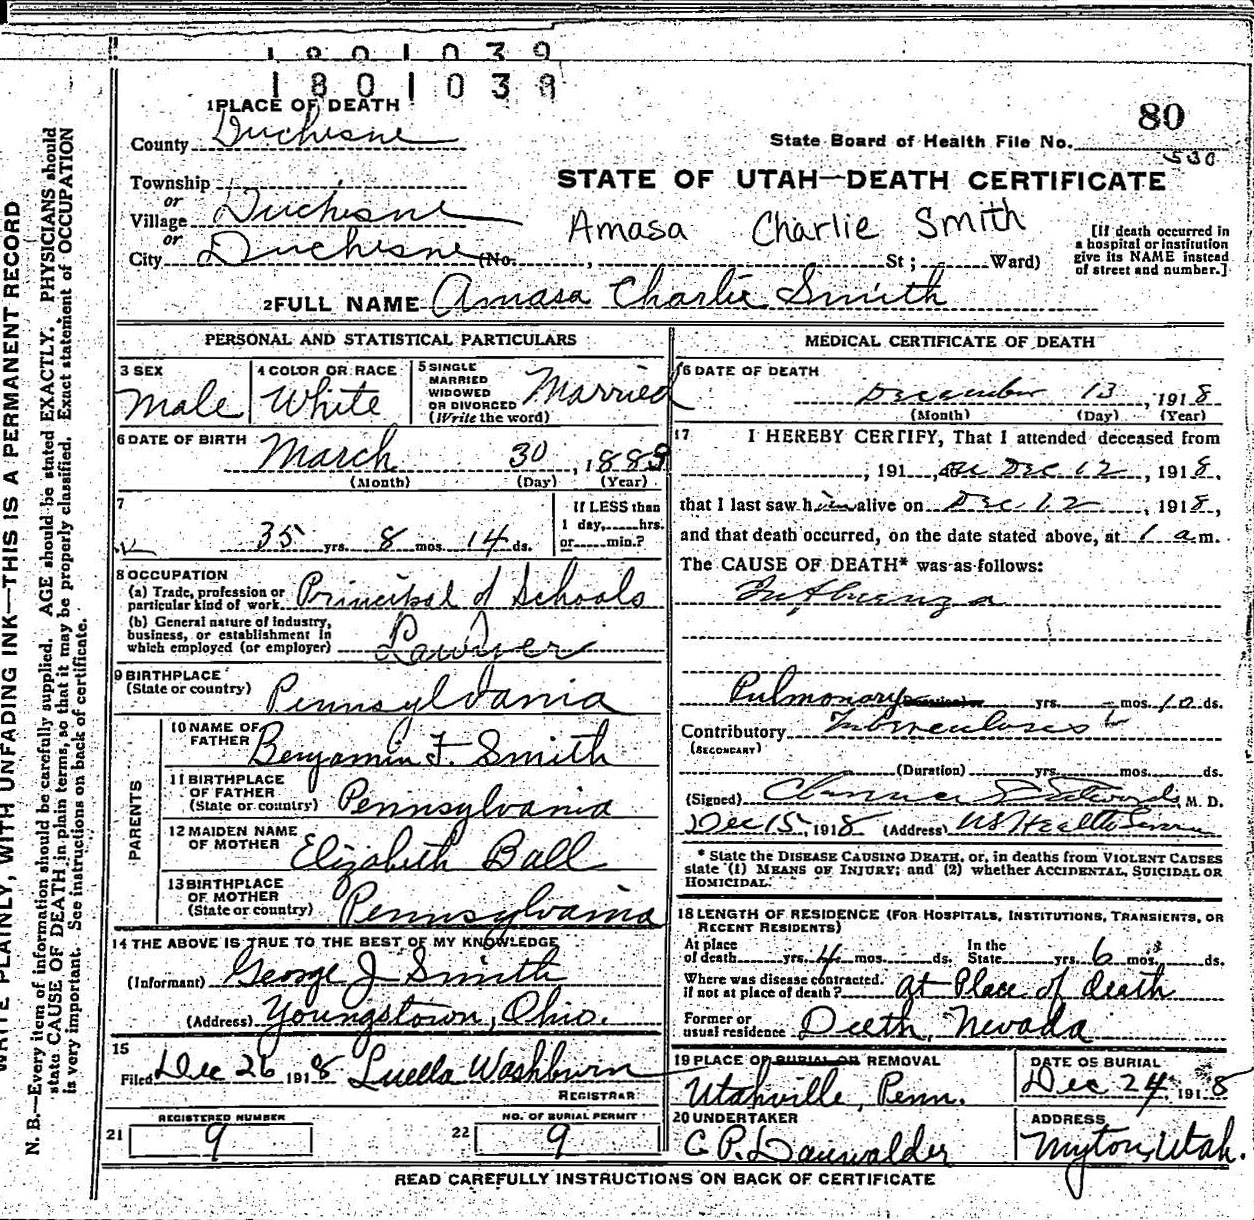 1801039
1801038
80
1 PLACE OF DEATH
County Duchesne
State Board of Health File No.
530
Township
or
Village Duchesne
or
City Duchesne (No. , St; Ward)
STATE OF UTAH—DEATH CERTIFICATE
Amasa Charlie Smith
[If death occurred in
a hospital or institution
give its NAME instead
of street and number.]
2 FULL NAME Amasa Charlie Smith
PERSONAL AND STATISTICAL PARTICULARS
3 SEX
Male
4 COLOR OR RACE
White
5 SINGLE
MARRIED
WIDOWED
OR DIVORCED
(Write the word)
Married
6 DATE OF BIRTH
March 30, 1883
(Month) (Day) (Year)
7
35 yrs. 8 mos. 14 ds.
If LESS than
1 day, hrs.
or min.?
8 OCCUPATION
(a) Trade, profession or
particular kind of work Principal of Schools
(b) General nature of industry,
business, or establishment in
which employed (or employer) Lawyer
9 BIRTHPLACE
(State or country) Pennsylvania
PARENTS
10 NAME OF
FATHER Benjamin F. Smith
11 BIRTHPLACE
OF FATHER
(State or country) Pennsylvania
12 MAIDEN NAME
OF MOTHER Elizabeth Ball
13 BIRTHPLACE
OF MOTHER
(State or country) Pennsylvania
14 THE ABOVE IS TRUE TO THE BEST OF MY KNOWLEDGE
(Informant) George J Smith
(Address) Youngstown, Ohio.
15
Filed Dec 26 1918 Luella Washburn
REGISTRAR
REGISTERED NUMBER
21 9
NO. OF BURIAL PERMIT
22 9
MEDICAL CERTIFICATE OF DEATH
16 DATE OF DEATH
December 13, 1918
(Month) (Day) (Year)
17 I HEREBY CERTIFY, That I attended deceased from
, 191 , on Dec 12, 1918,
that I last saw him alive on Dec 12, 1918,
and that death occurred, on the date stated above, at 1 a m.
The CAUSE OF DEATH* was as follows:
Influenza
Pulmonary (Duration) or yrs. - mos. 10 ds.
Contributory Tuberculosis
(SECONDARY)
(Duration) yrs. mos. ds.
(Signed) M. D.
Dec 15, 1918 (Address) US Health
* State the DISEASE CAUSING DEATH, or, in deaths from VIOLENT CAUSES
state (1) MEANS OF INJURY; and (2) whether ACCIDENTAL, SUICIDAL OR
HOMICIDAL.
18 LENGTH OF RESIDENCE (FOR HOSPITALS, INSTITUTIONS, TRANSIENTS, OR
RECENT RESIDENTS)
At place
of death yrs. 4 mos. ds.
In the
State yrs. 6 mos. ds.
Where was disease contracted,
if not at place of death? at Place of death
Former or
usual residence Deeth, Nevada
19 PLACE OF BURIAL OR REMOVAL
Utahville, Penn.
DATE OF BURIAL
Dec 24, 1918
20 UNDERTAKER
C P. Dauwalder
ADDRESS
Myton, Utah.
READ CAREFULLY INSTRUCTIONS ON BACK OF CERTIFICATE
WRITE PLAINLY, WITH UNFADING INK—THIS IS A PERMANENT RECORD
N. B.—Every item of information should be carefully supplied. AGE should be stated EXACTLY. PHYSICIANS should
state CAUSE OF DEATH in plain terms, so that it may be properly classified. Exact statement of OCCUPATION
is very important. See instructions on back of certificate.